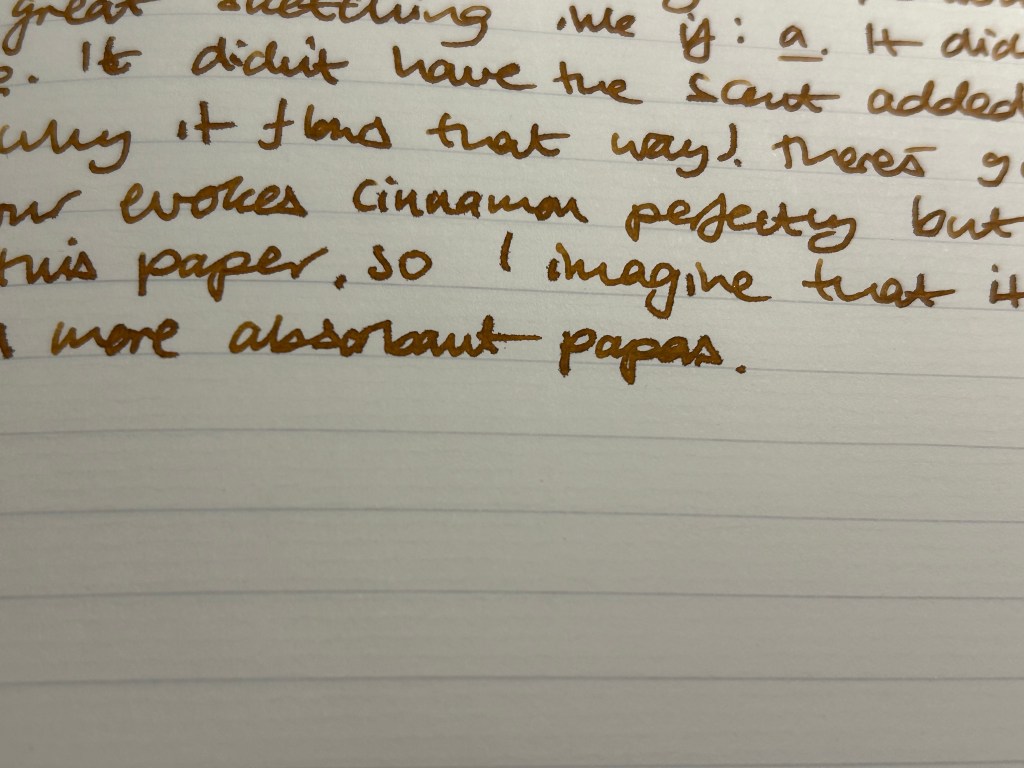 great sketching ink if : a. It did
. It didn't have the scent added
why it flows that way). There's g
our evokes cinnamon perfectly but
this paper, so I imagine that it
more absorbant papers.